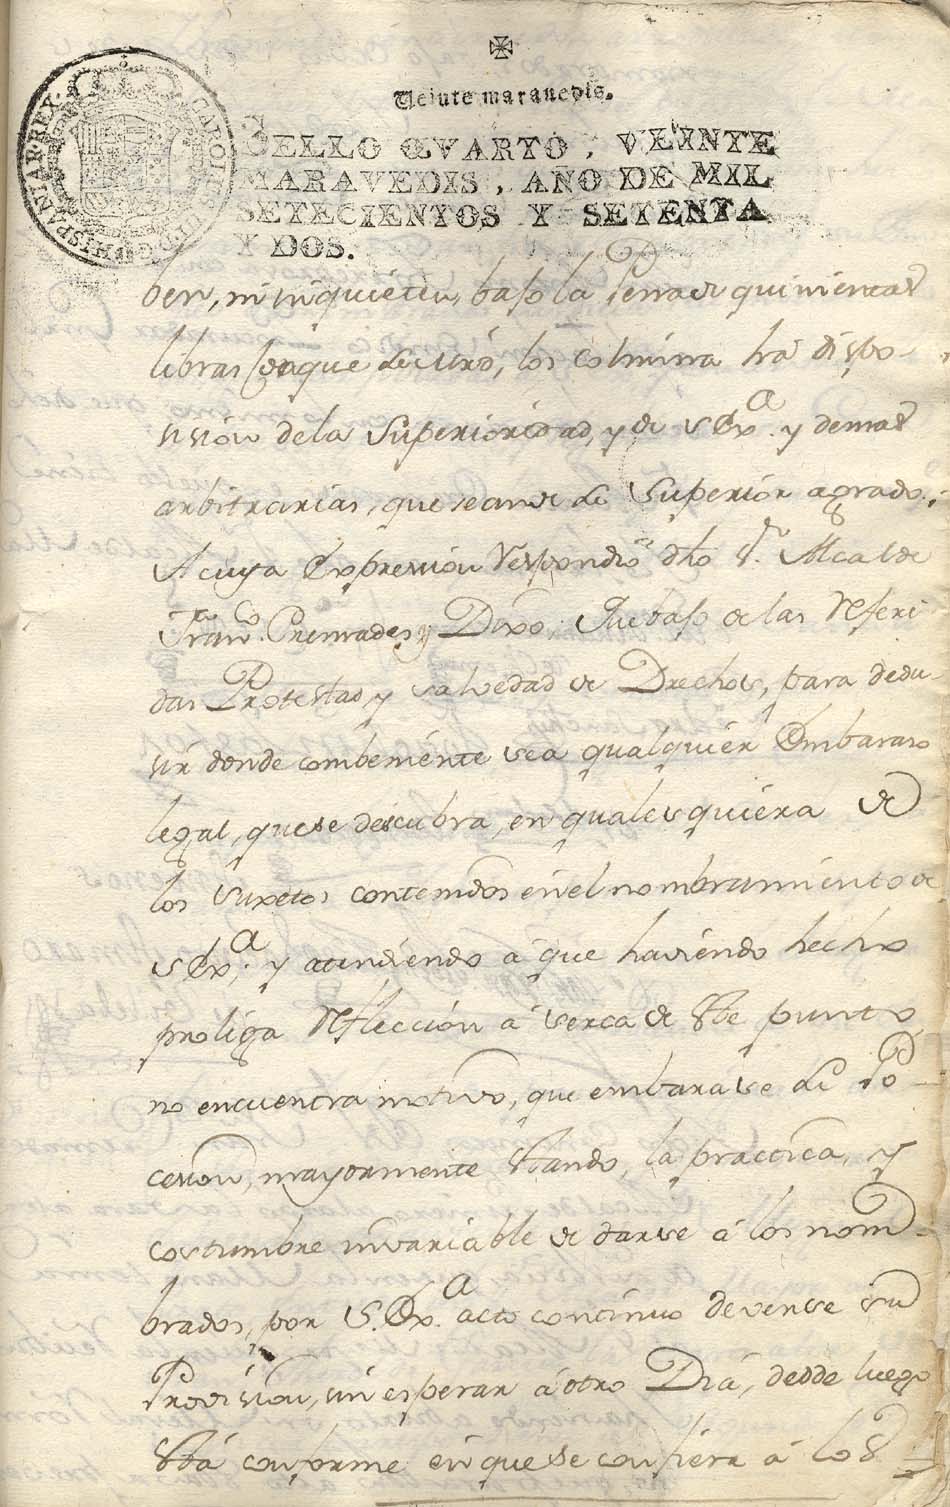 ✠
Veinte maravedis.
SELLO QVARTO, VEINTE
MARAVEDIS, AÑO DE MIL
SETECIENTOS Y SETENTA
Y DOS.
CAROLUS III D G HISPANIAR REX
ber, ni inquieten, bajo la Pena de quinientas
libras en que los colmina hà dispo-
sision dela Superioridad, y de S Exa. y demas
arbitrarias, que sean de su Superior agrado.
Acuya Expression Respondió dho Sr. Alcalde
Franco. Premrades y Dixo: Que bajo de las referi
das Protestas y salvedad de Drechos, para dedu-
sir donde combeniente sea qualquier Embaraso
legal, que se descubra, en qualesquiera de
los suxetos contenidos en el nombramiento de
S Exa; y atendiendo à que haviendo hecho
proliga reflección à serca de Este punto
no encuentra motivo, que embarase su Po-
cesion, mayormente Estando, la practica, y
costumbre invariable de darse à los nom-
brados, por S. Exa. acto continuo de verse su
Provision, sin esperar à otro Dia, desde luego
Està conforme en que se confiera à los